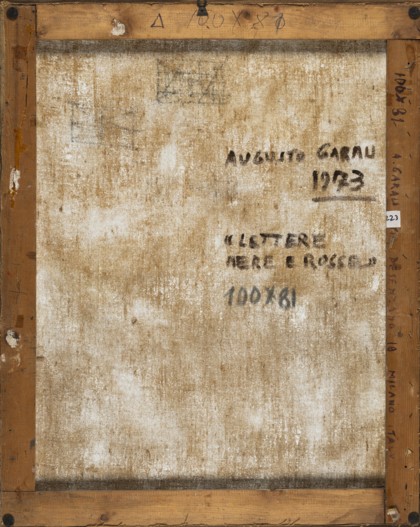 Δ 100 X 81
AUGUSTO GARAU
1973
«LETTERE
NERE E ROSSE»
100X81
100X81 A. GARAU
MILANO